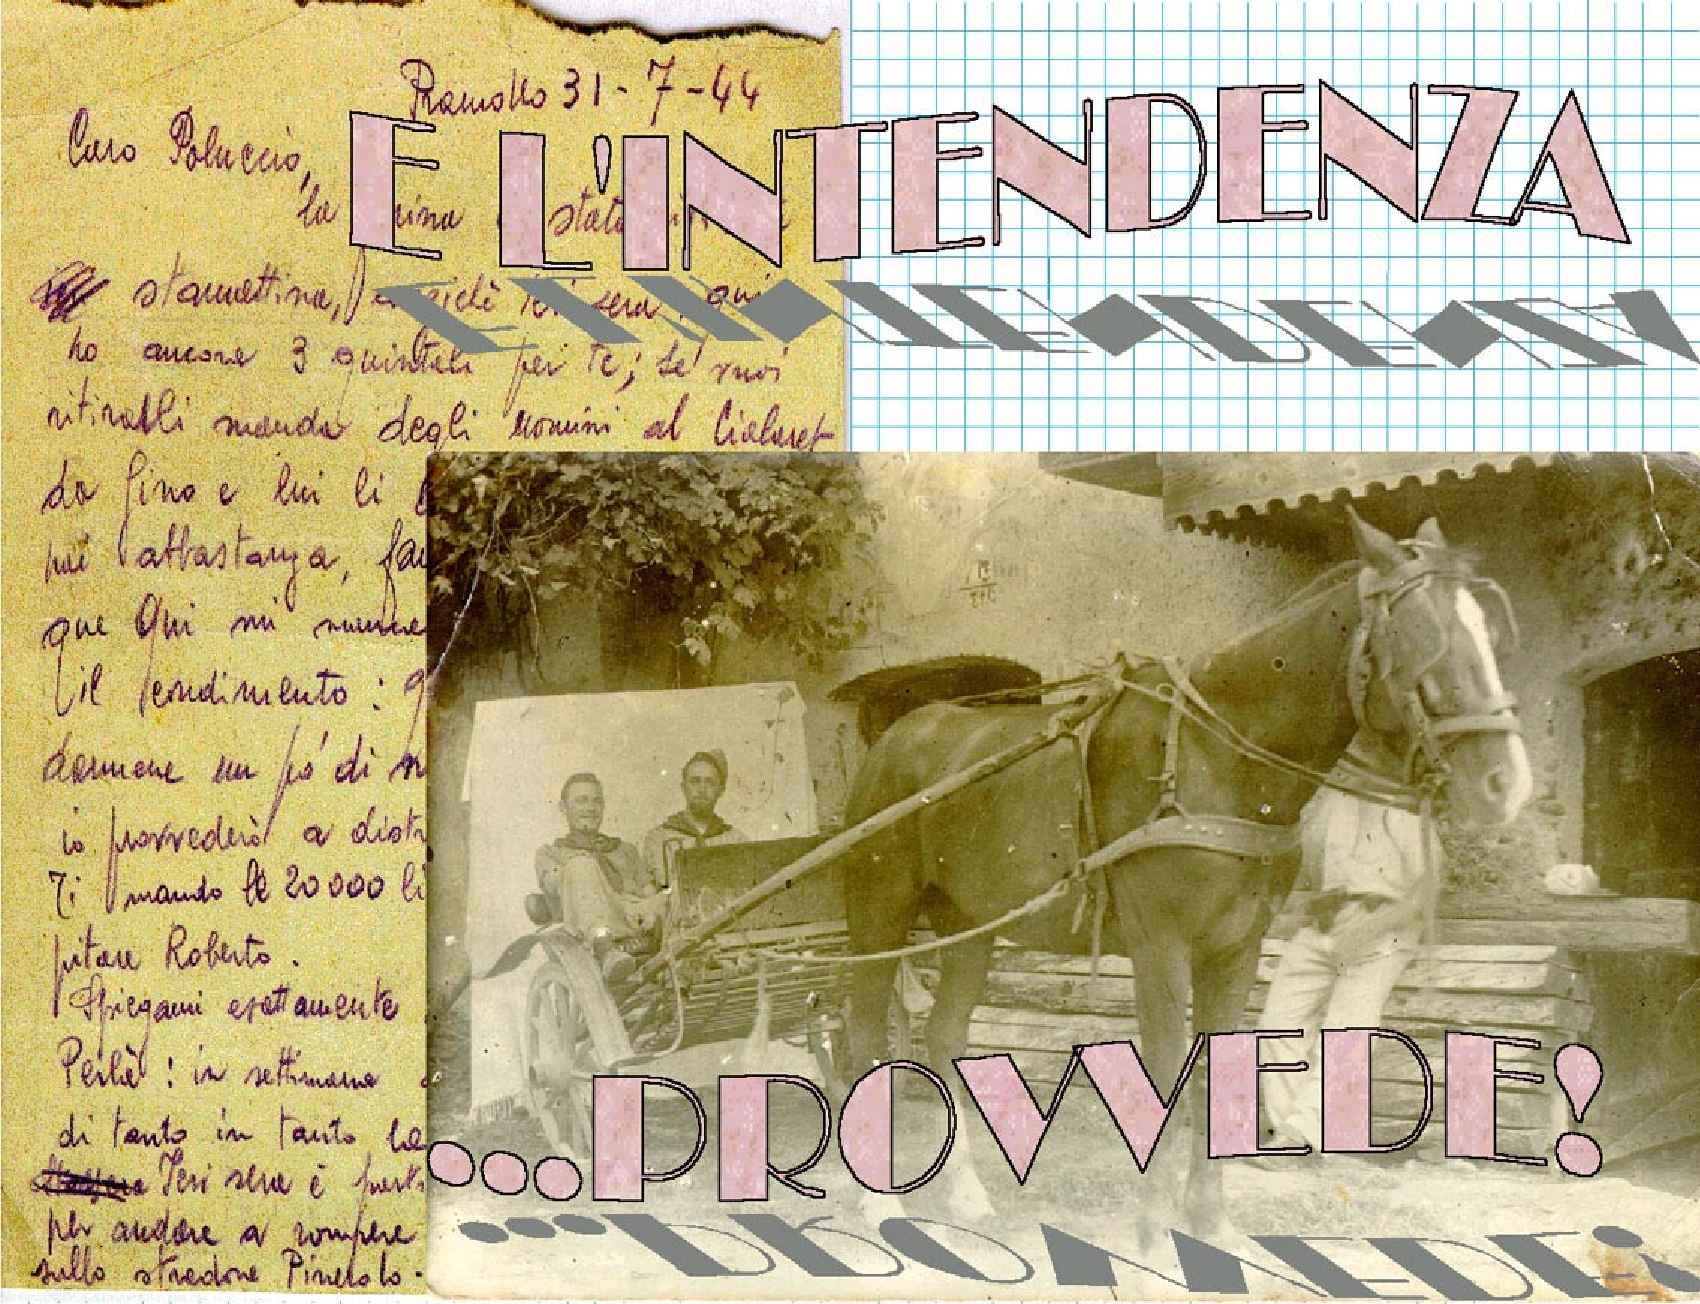 Pramollo 31-7-44
Caro Poluccio,
E L'INTENDENZA
la
stamattina, ieri sera qui
ho ancora 3 quintali per te; se vuoi
ritirarli manda degli uomini al Ciabaret
da Gino e lui li
poi abbastanza,
que Qui mi
il condimento:
darmene un po' di
io provvederò a
Ti mando le 20000
pitare Roberto.
Spiegami esattamente
Perchè: in settimana
di tanto in tanto
Ieri sera è
per andare a rompere
sullo stradone Pinerolo-
...PROVVEDE!